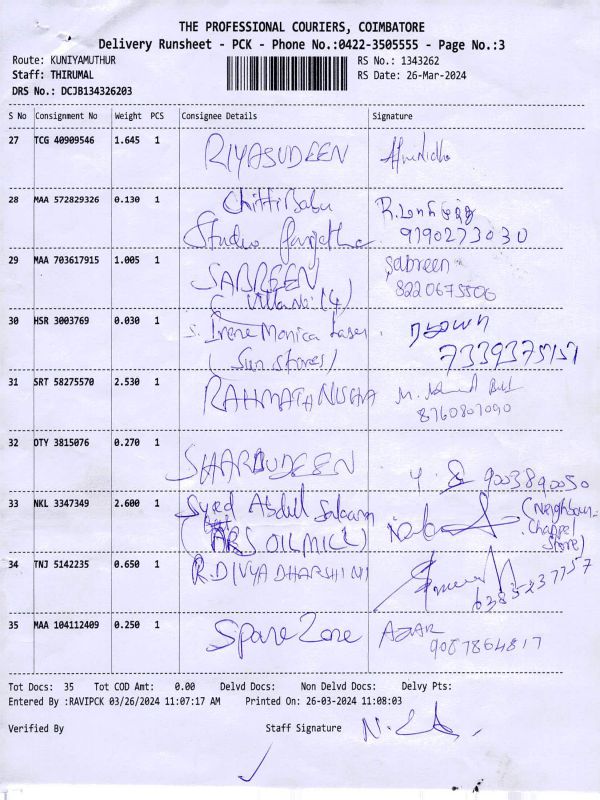 THE PROFESSIONAL COURIERS, COIMBATORE
Delivery Runsheet - PCK - Phone No.:0422-3505555 - Page No.:3
Route: KUNIYAMUTHUR RS No.: 1343262
Staff: THIRUMAL RS Date: 26-Mar-2024
DRS No.: DCJB134326203
S No Consignment No Weight PCS Consignee Details Signature
27 TCG 40909546 1.645 1 RIYASUDEEN
28 MAA 572829326 0.130 1 Chitti Babu
Studio 9190273030
29 MAA 703617915 1.005 1 SABREEN Sabreen
(4) 8220675506
30 HSR 3003769 0.030 1 S. Irene Monica Laser
(Sun stores) 7339375157
31 SRT 58275570 2.530 1 RAHMATH NISHA M.
8760807090
32 OTY 3815076 0.270 1 SHARBUDEEN 9003890050
33 NKL 3347349 2.600 1 Syed Abdul Salaam (Neighbour
(ARS OIL MILL) Chappel
Store)
34 TNJ 5142235 0.650 1 R. DIVYADHARSHINI
6385237757
35 MAA 104112409 0.250 1 Spare Zone AZAR
9087864817
Tot Docs: 35 Tot COD Amt: 0.00 Delvd Docs: Non Delvd Docs: Delvy Pts:
Entered By :RAVIPCK 03/26/2024 11:07:17 AM Printed On: 26-03-2024 11:08:03
Verified By Staff Signature